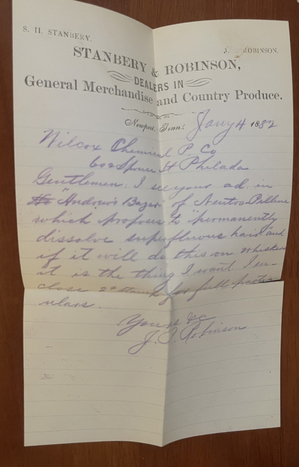 S. H. STANBERY.
J. ROBINSON.
STANBERY & ROBINSON,
DEALERS IN
General Merchandise and Country Produce.
Newport, Tenn: Jany 4 1882
Wilcox Chemical P. Co
Spruce St Philada
Gentlemen. I see your ad in
"Andrews Bazar" of
which propose to "permanently
dissolve superflerous hair" and
if it will do this on whiskers
it is the thing I want I en-
close 2c stamp for full partic
ulars.
Yours &c
J. Robinson